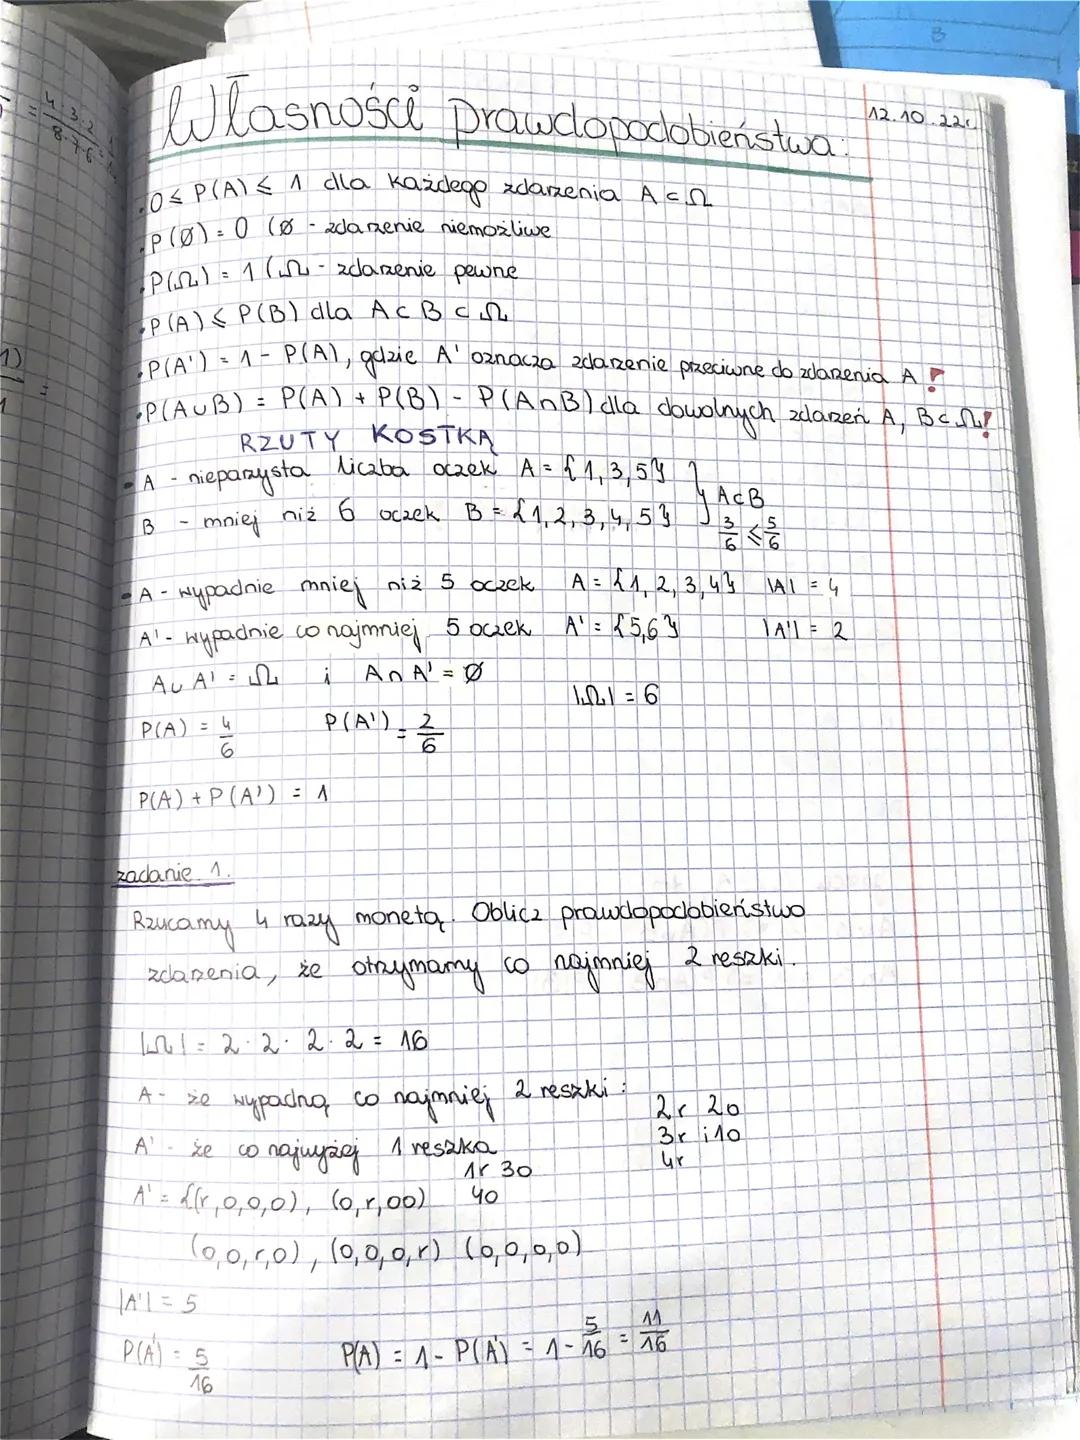 Własności prawdopodobieństwa:
12.10.22r.
• 0 ≤ P(A) ≤ 1 dla każdego zdarzenia A ⊂ Ω
• P(Ø) = 0 (Ø - zdarzenie niemożliwe
• P(Ω) = 1 (Ω - zdarzenie pewne
• P(A) ≤ P(B) dla A ⊂ B ⊂ Ω
• P(A') = 1 - P(A), gdzie A' oznacza zdarzenie przeciwne do zdarzenia A !
• P(A∪B) = P(A) + P(B) - P(A∩B) dla dowolnych zdarzeń A, B ⊂ Ω !
RZUTY KOSTKĄ
• A - nieparzysta liczba oczek A = {1,3,5}
B - mniej niż 6 oczek B = {1,2,3,4,5}
} A⊂B
3/6 ≤ 5/6
• A - wypadnie mniej niż 5 oczek A = {1,2,3,4} |A| = 4
A' - wypadnie co najmniej 5 oczek A' = {5,6} |A'| = 2
A∪A' = Ω i A∩A' = Ø
|Ω| = 6
P(A) = 4/6 P(A') = 2/6
P(A) + P(A') = 1
zadanie. 1.
Rzucamy 4 razy monetą. Oblicz prawdopodobieństwo
zdarzenia, że otrzymamy co najmniej 2 reszki.
|Ω| = 2·2·2·2 = 16
A - że wypadną co najmniej 2 reszki:
2r 2o
3r i 1o
4r
A' - że co najwyżej 1 reszka
1r 3o
4o
A' = {(r,o,o,o), (o,r,oo)
(o,o,r,o), (o,o,o,r) (o,o,o,o)
|A'| = 5
P(A') = 5/16
P(A) = 1 - P(A') = 1 - 5/16 = 11/16